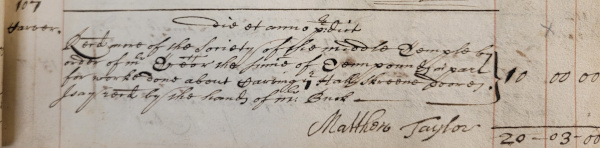 107
Carver.
die et anno p^rdict
Recd more of the Society of the middle Temple by
order of mr Trẽr the sume of Tenn pounds in part
for worke done about Carving ye Hall Skreene doores
I say recd by the hands of mr Buck
10 00 00
Matthew Taylor
20 - 03 - 00